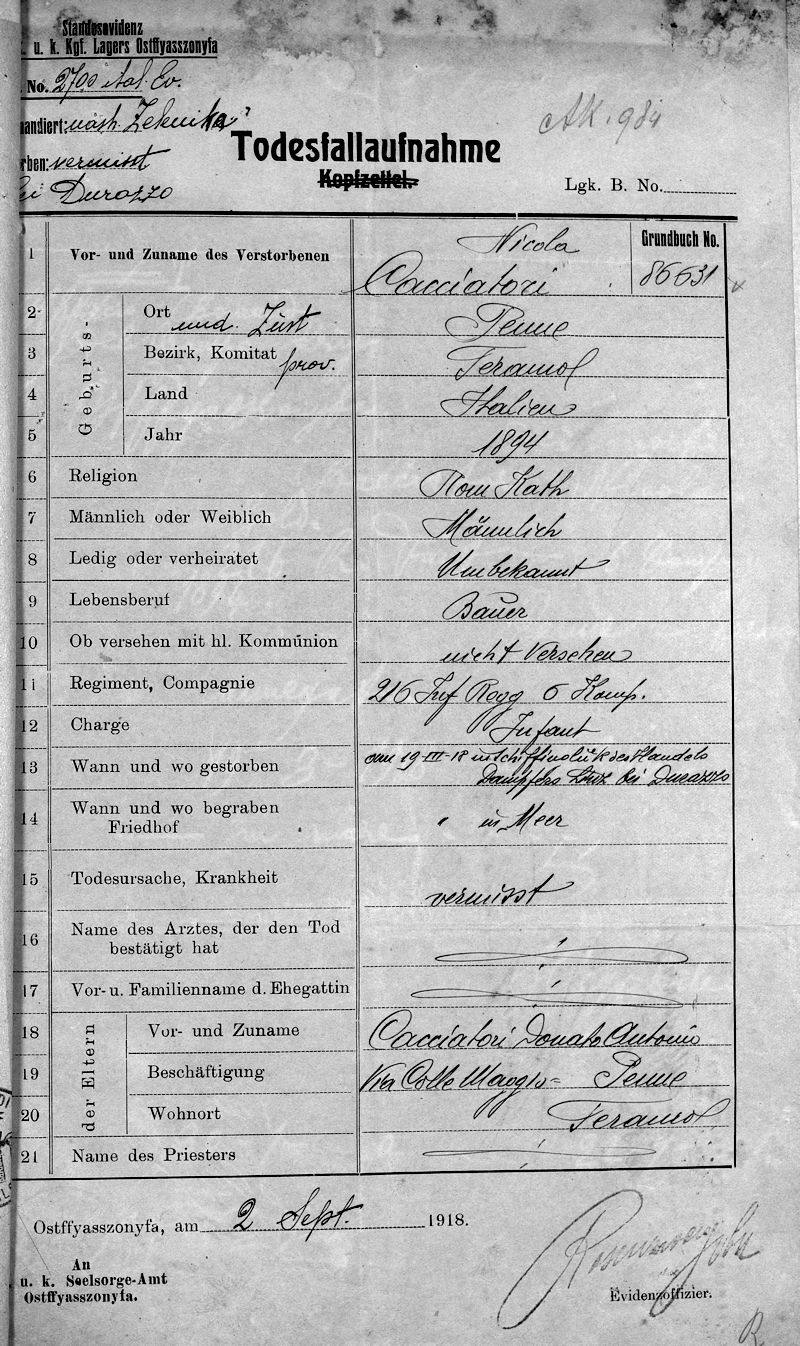 Standesevidenz
u. k. Kgf. Lagers Ostffyasszonyfa
No. 2700
mandiert: nach Zelenika
rben: vermisst
bei Durazzo
AK. 984
Todesfallaufnahme
Kopfzettel.
Lgk. B. No.
1 Vor- und Zuname des Verstorbenen Nicola Cacciatori
Grundbuch No. 86631
Geburts-
2 Ort und. Zust Penne
3 Bezirk, Komitat prov. Teramo
4 Land Italien
5 Jahr 1894
6 Religion Rom Kath
7 Männlich oder Weiblich Männlich
8 Ledig oder verheiratet Unbekannt
9 Lebensberuf Bauer
10 Ob versehen mit hl. Kommunion nicht versehen
11 Regiment, Compagnie 216 Inf Regg 6 Komp.
12 Charge Infant
13 Wann und wo gestorben am 19-III-18 des Handels
Dampfers bei Durazzo
14 Wann und wo begraben
Friedhof " in Meer
15 Todesursache, Krankheit vermisst
16 Name des Arztes, der den Tod
bestätigt hat
17 Vor- u. Familienname d. Ehegattin
der Eltern
18 Vor- und Zuname Cacciatori Donato Antonio
19 Beschäftigung Via Colle Maggio = Penne
20 Wohnort Teramo
21 Name des Priesters
Ostffyasszonyfa, am 2 Sept. 1918.
An
u. k. Seelsorge-Amt
Ostffyasszonyfa.
Evidenzoffizier.
R